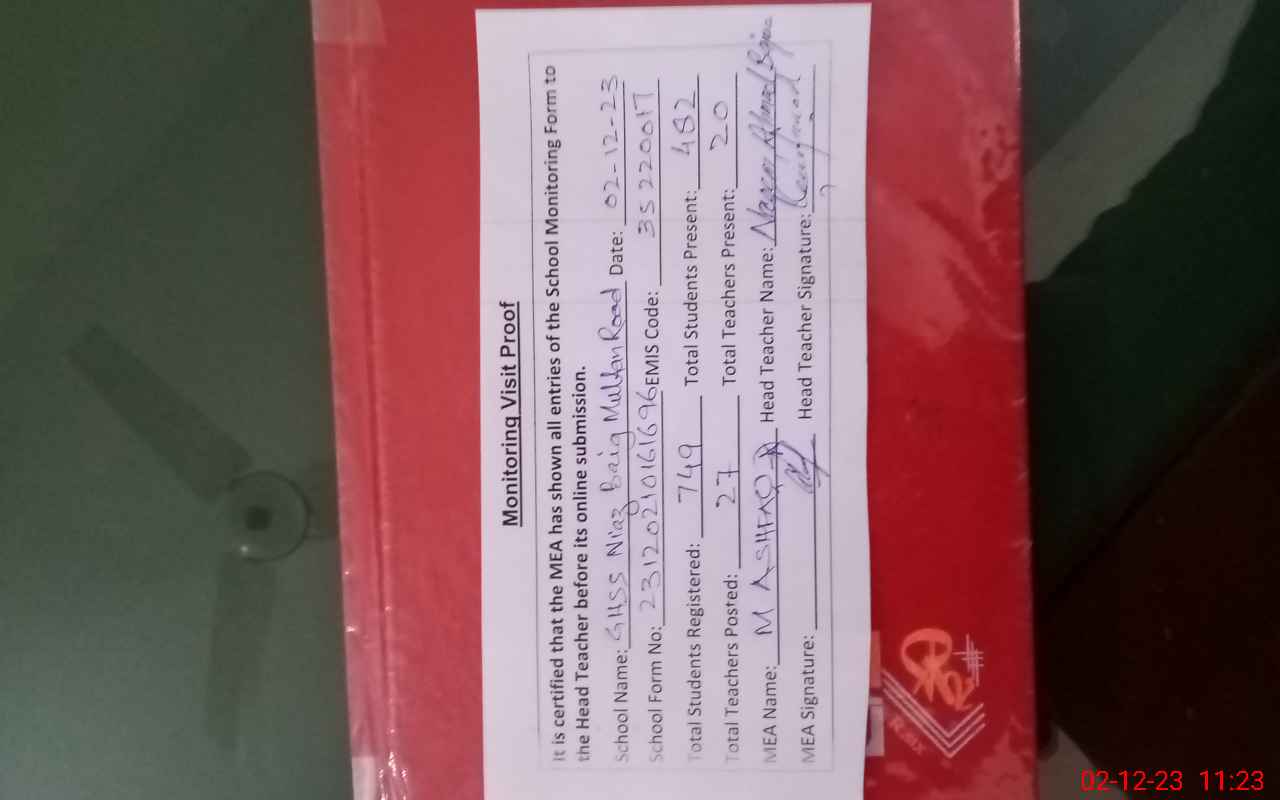 Monitoring Visit Proof
It is certified that the MEA has shown all entries of the School Monitoring Form to
the Head Teacher before its online submission.
School Name: GHSS Niaz Baig Multan Road Date: 02-12-23
School Form No: 23120210161696 EMIS Code: 35220017
Total Students Registered: 749 Total Students Present: 482
Total Teachers Posted: 27 Total Teachers Present: 20
MEA Name: M ASHFAQ Head Teacher Name: Ahmad
MEA Signature: Head Teacher Signature:
02-12-23 11:23